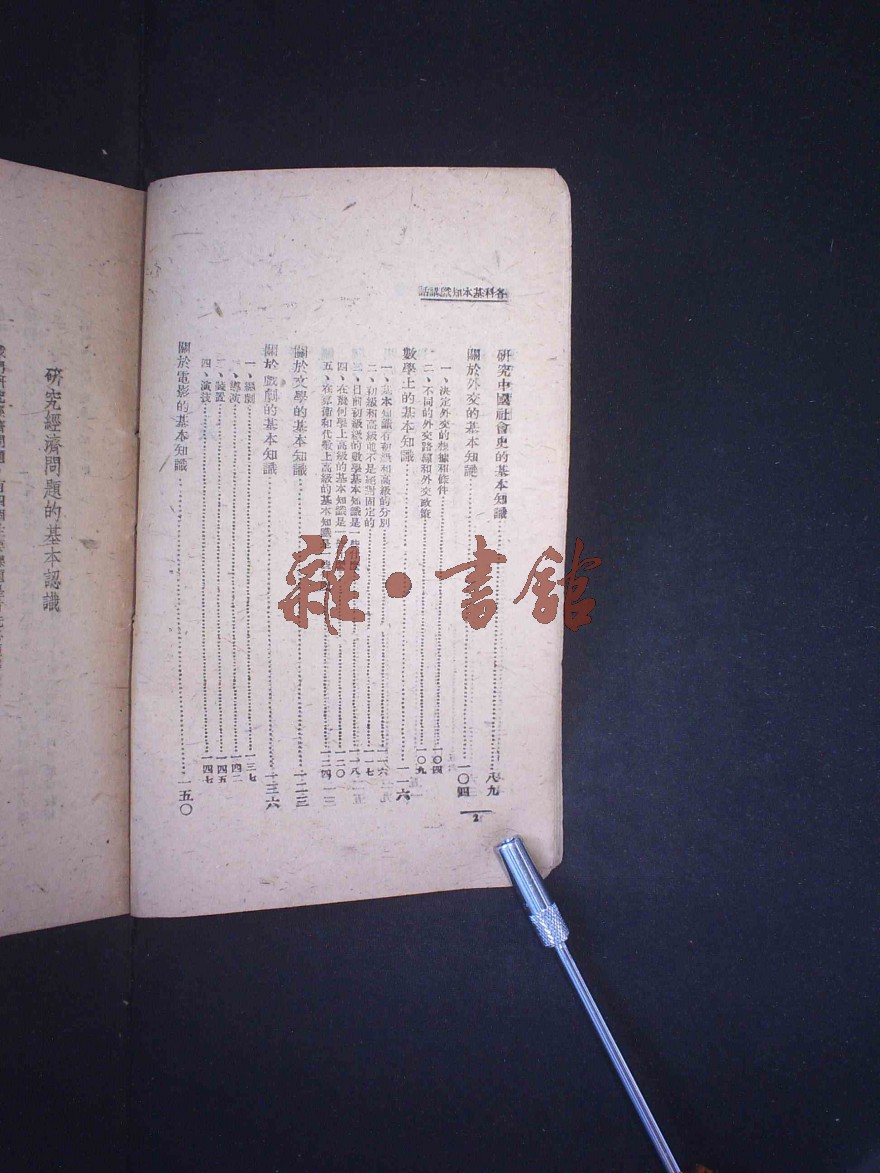 各科基本知識講話
研究中國社會史的基本知識……八九
關於外交的基本知識……一〇四
一、決定外交的根據和條件……一〇四
二、不同的外交路線和外交政策……一〇九
數學上的基本知識……一一六
一、基本知識有初級和高級的分別……一一六
二、初級和高級並不是絕對固定的……一一七
三、目前初級的數學基本知識是一些……一一八
四、在幾何學上高級的基本知識是一……一二〇
五、在算術和代數上高級的基本知識是一……一二四
關於文學的基本知識……一二三
關於戲劇的基本知識……一三六
一、編劇……一三七
二、導演……一四二
三、裝置……一四五
四、演技……一四七
關於電影的基本知識……一五〇
2
研究經濟問題的基本認識
雜·書館